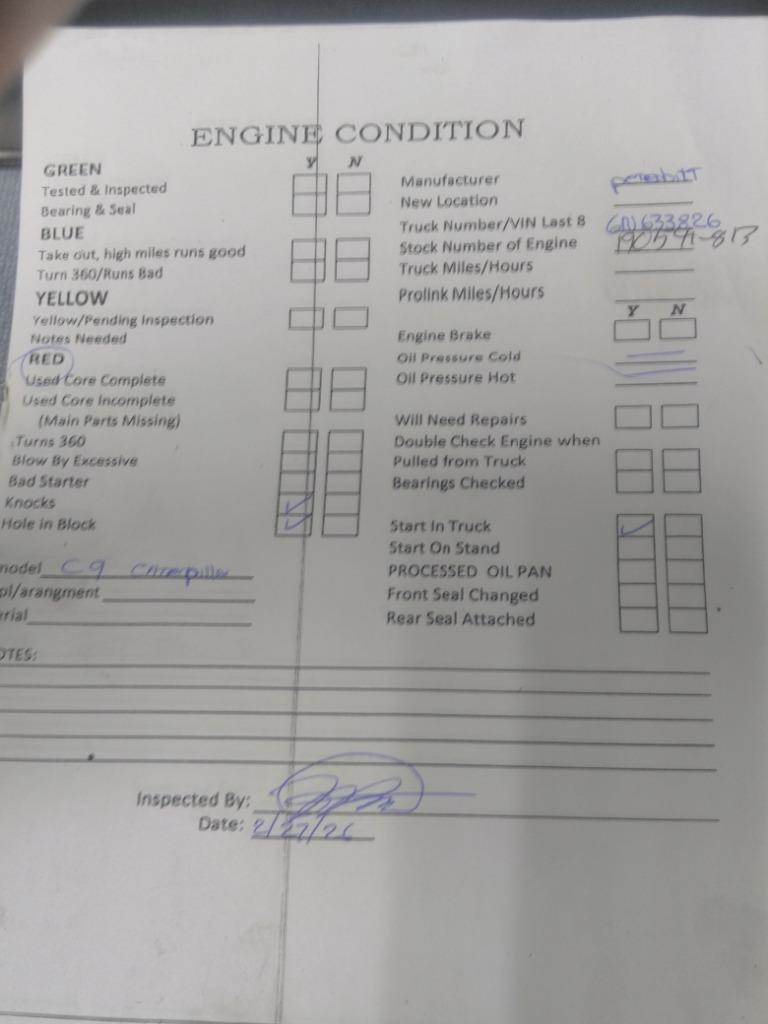 ENGINE CONDITION
GREEN Y N
Tested & Inspected
Bearing & Seal
BLUE
Take out, high miles runs good
Turn 360/Runs Bad
YELLOW
Yellow/Pending Inspection
Notes Needed
RED
Used Core Complete
Used Core Incomplete
(Main Parts Missing)
Turns 360
Blow By Excessive
Bad Starter
Knocks
Hole in Block
model C9 Caterpillar
pl/arangment
erial
OTES:
Manufacturer peterbilt
New Location
Truck Number/VIN Last 8 6N633826
Stock Number of Engine
Truck Miles/Hours
Prolink Miles/Hours
Y N
Engine Brake
Oil Pressure Cold
Oil Pressure Hot
Will Need Repairs
Double Check Engine when
Pulled from Truck
Bearings Checked
Start In Truck
Start On Stand
PROCESSED OIL PAN
Front Seal Changed
Rear Seal Attached
Inspected By:
Date: 2/27/26